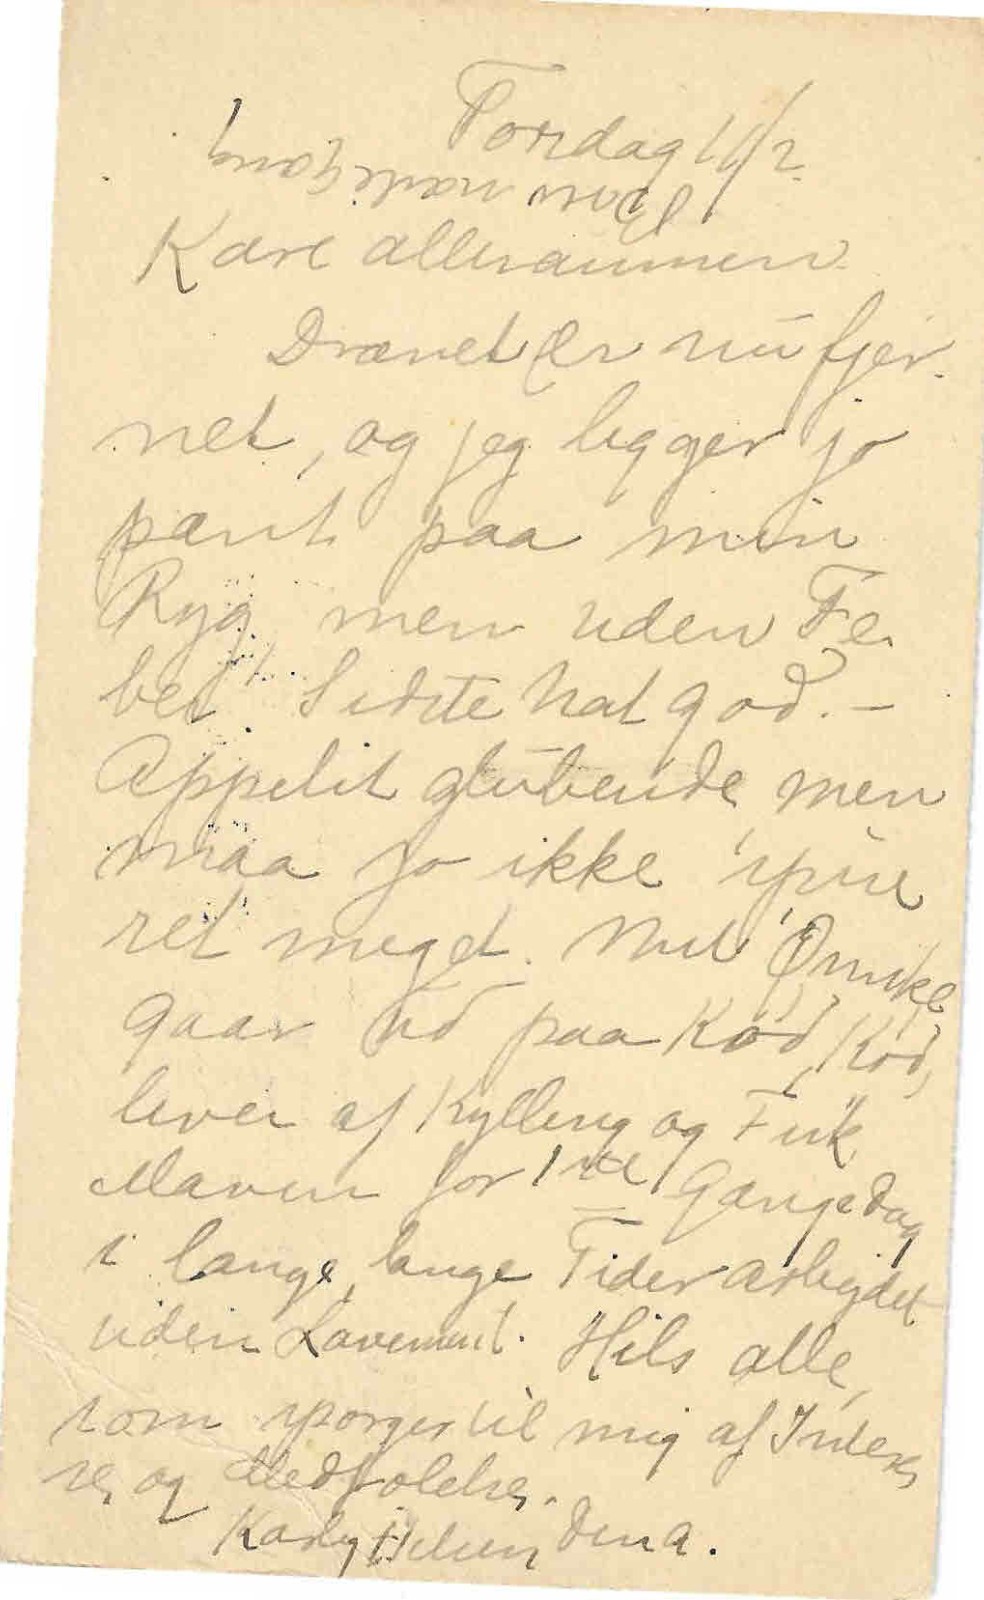 Torsdag 11/2.
Kære allesammen.
Drænet er nu fjer-
net, og jeg ligger jo
pænt paa min
Ryg men uden Fe-
ber. Sidste Nat god. –
Appetit glubende men
maa jo ikke spise
ret meget. Mit Ønske
gaar ud paa Kød, Kød,
lever af Kylling og Fisk
Maven for 1ste Gang i Dag
i lange, lange Tider arbejdet
uden Lavement. Hils alle,
som spørger til mig af Interes-
se, og Medfølelse.
Kærlig Hilsen, din A.
næste Gang